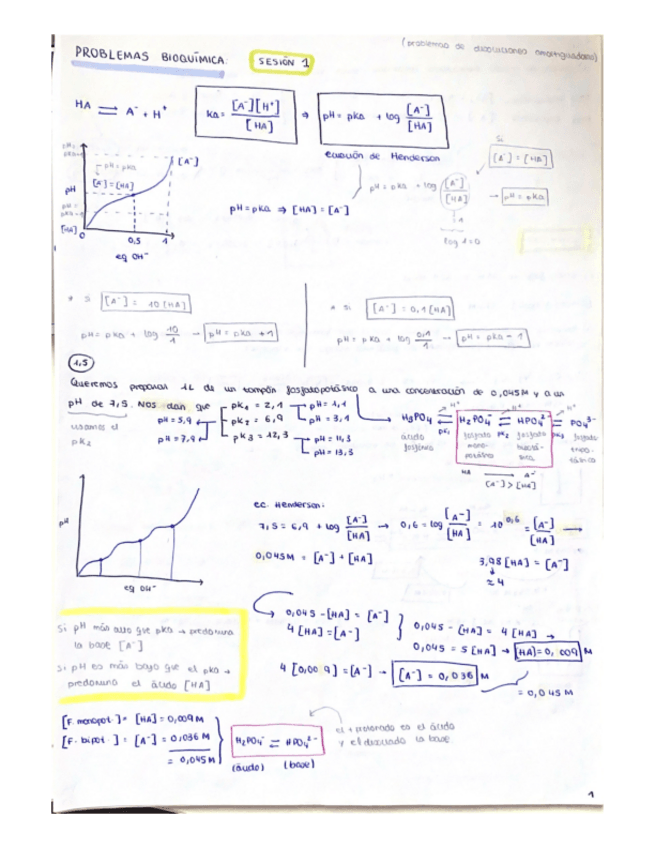 (problemas de disoluciones amortiguadoras)
PROBLEMAS BIOQUÍMICA: SESIÓN 1
HA ⇌ A⁻ + H⁺
Ka = [A⁻][H⁺] / [HA] → pH = pKa + log [A⁻] / [HA]
ecuación de Henderson
Si [A⁻] = [HA]
pH = pKa + log [A⁻] / [HA] → pH = pKa
1
log 1 = 0
[A⁻]
pH = pKa
[A⁻] = [HA]
pH
[HA] 0 0,5 1
eq OH⁻
pH = pKa ⇒ [HA] = [A⁻]
* Si [A⁻] = 10 [HA]
pH = pKa + log 10/1 → pH = pKa + 1
* si [A⁻] = 0,1 [HA]
pH = pKa + log 0,1/1 → pH = pKa - 1
1,5
Queremos preparar 1L de un tampón fosfatopotásico a una concentración de 0,045M y a un
pH de 7,5. Nos dan que
usamos el pK₂
pK₁ = 2,1 pH = 1,1 pH = 3,1
pH = 5,9 pH = 7,9 pK₂ = 6,9
pK₃ = 12,3 pH = 11,3 pH = 13,3
H₃PO₄ ⇌ H₂PO₄⁻ ⇌ HPO₄²⁻ ⇌ PO₄³⁻
H⁺ H⁺ H⁺
pK₁ pK₂ pK₃
ácido fosfórico
fosfato monopotásico
fosfato
fosfato
HA → A⁻
[A⁻] > [HA]
pH
eq OH⁻
ec. Henderson:
7,5 = 6,9 + log [A⁻] / [HA] → 0,6 = log [A⁻] / [HA] = 10^0,6 = [A⁻] / [HA] →
0,045M = [A⁻] + [HA]
3,98 [HA] = [A⁻]
≈ 4
0,045 - [HA] = [A⁻]
4 [HA] = [A⁻]
0,045 - [HA] = 4 [HA] →
0,045 = 5 [HA] → [HA] = 0,009 M
4 [0,009] = [A⁻] → [A⁻] = 0,036 M
= 0,045 M
Si pH más alto que pKa → predomina
la base [A⁻]
Si pH es más bajo que el pKa →
predomina el ácido [HA]
[F. monopot.] = [HA] = 0,009 M
[F. bipot.] = [A⁻] = 0,036 M
= 0,045 M
H₂PO₄⁻ ⇌ HPO₄²⁻
(ácido) (base)
el + protonado es el ácido
y el disociado la base
1